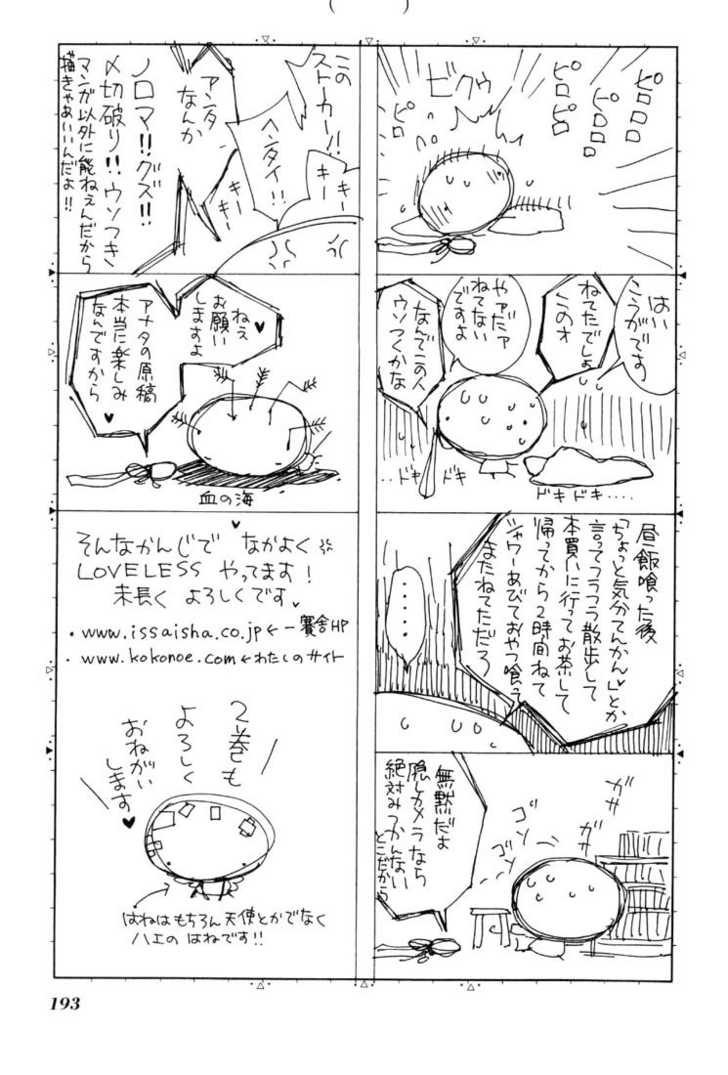 ピロロロ
ピロロロ
ピロピロ
ビクゥ
はい
こうがです
ねてたでしょ
このオ
やァだァ
ねてない
ですよ
なんでこの人
ウソつくかな
‥ドキ ドキ
ドキドキ‥‥
昼飯喰った後
「ちょっと気分てんかん」とか
言ってフラフラ散歩して
本買いに行ってお茶して
帰ってから2時間ねて
シャワーあびておやつ喰って
またねてただろ
‥‥
ガサ
ガサ
ゴソ
ゴソ
無駄だよ
隠しカメラなら
絶対みつかんない
とこだから
この
ストーカー!!
ヘンタイ!!
キー
キー
キー
キー
アンタ
なんか
ノロマ!!グズ!!
〆切破り!!ウソつき
マンガ以外に能ねぇんだから
描きゃあいいんだよ!!
ねぇ♥
お願い
しますよ
アナタの原稿
本当に楽しみ
なんですから♥
血の海
そんなかんじで なかよく
LOVELESS やってます!
末長く よろしくです♥
・www.issaisha.co.jp←一賽舎HP
・www.kokonoe.com←わたしのサイト
2巻も
よろしく
おねがい
します♥
はねはもちろん天使とかでなく
ハエの はねです!!
193